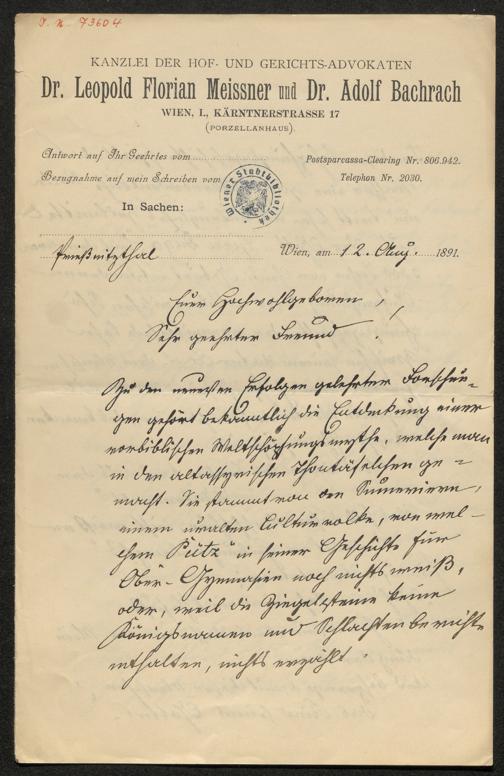 I. N. 73604
KANZLEI DER HOF- UND GERICHTS-ADVOKATEN
Dr. Leopold Florian Meissner und Dr. Adolf Bachrach
WIEN, I., KÄRNTNERSTRASSE 17
(PORZELLANHAUS).
Antwort auf Ihr Geehrtes vom
Postsparcassa-Clearing Nr. 806.942.
Bezugnahme auf mein Schreiben vom
Telephon Nr. 2030.
Wiener Stadtbibliothek
In Sachen:
Prießnitzthal
Wien, am 12. Aug. 1891.
Euer Hochwohlgeboren,
Sehr geehrter Freund!
Zu den neuesten Erfolgen gelehrter Forschun-
gen gehört bekanntlich die Entdeckung einer
vorbiblischen Weltschöpfungsmythe, welche man
in den altassyrischen Thontäfelchen ge-
macht. Sie stammt von den Sumeriern,
einem uralten Culturvolke, von wel-
chem "Pütz" in seiner Geschichte für
Ober-Gymnasien noch nichts weiß,
oder, weil die Ziegelsteine keine
Königsnamen und Schlachtenberichte
enthalten, nichts erzählt.